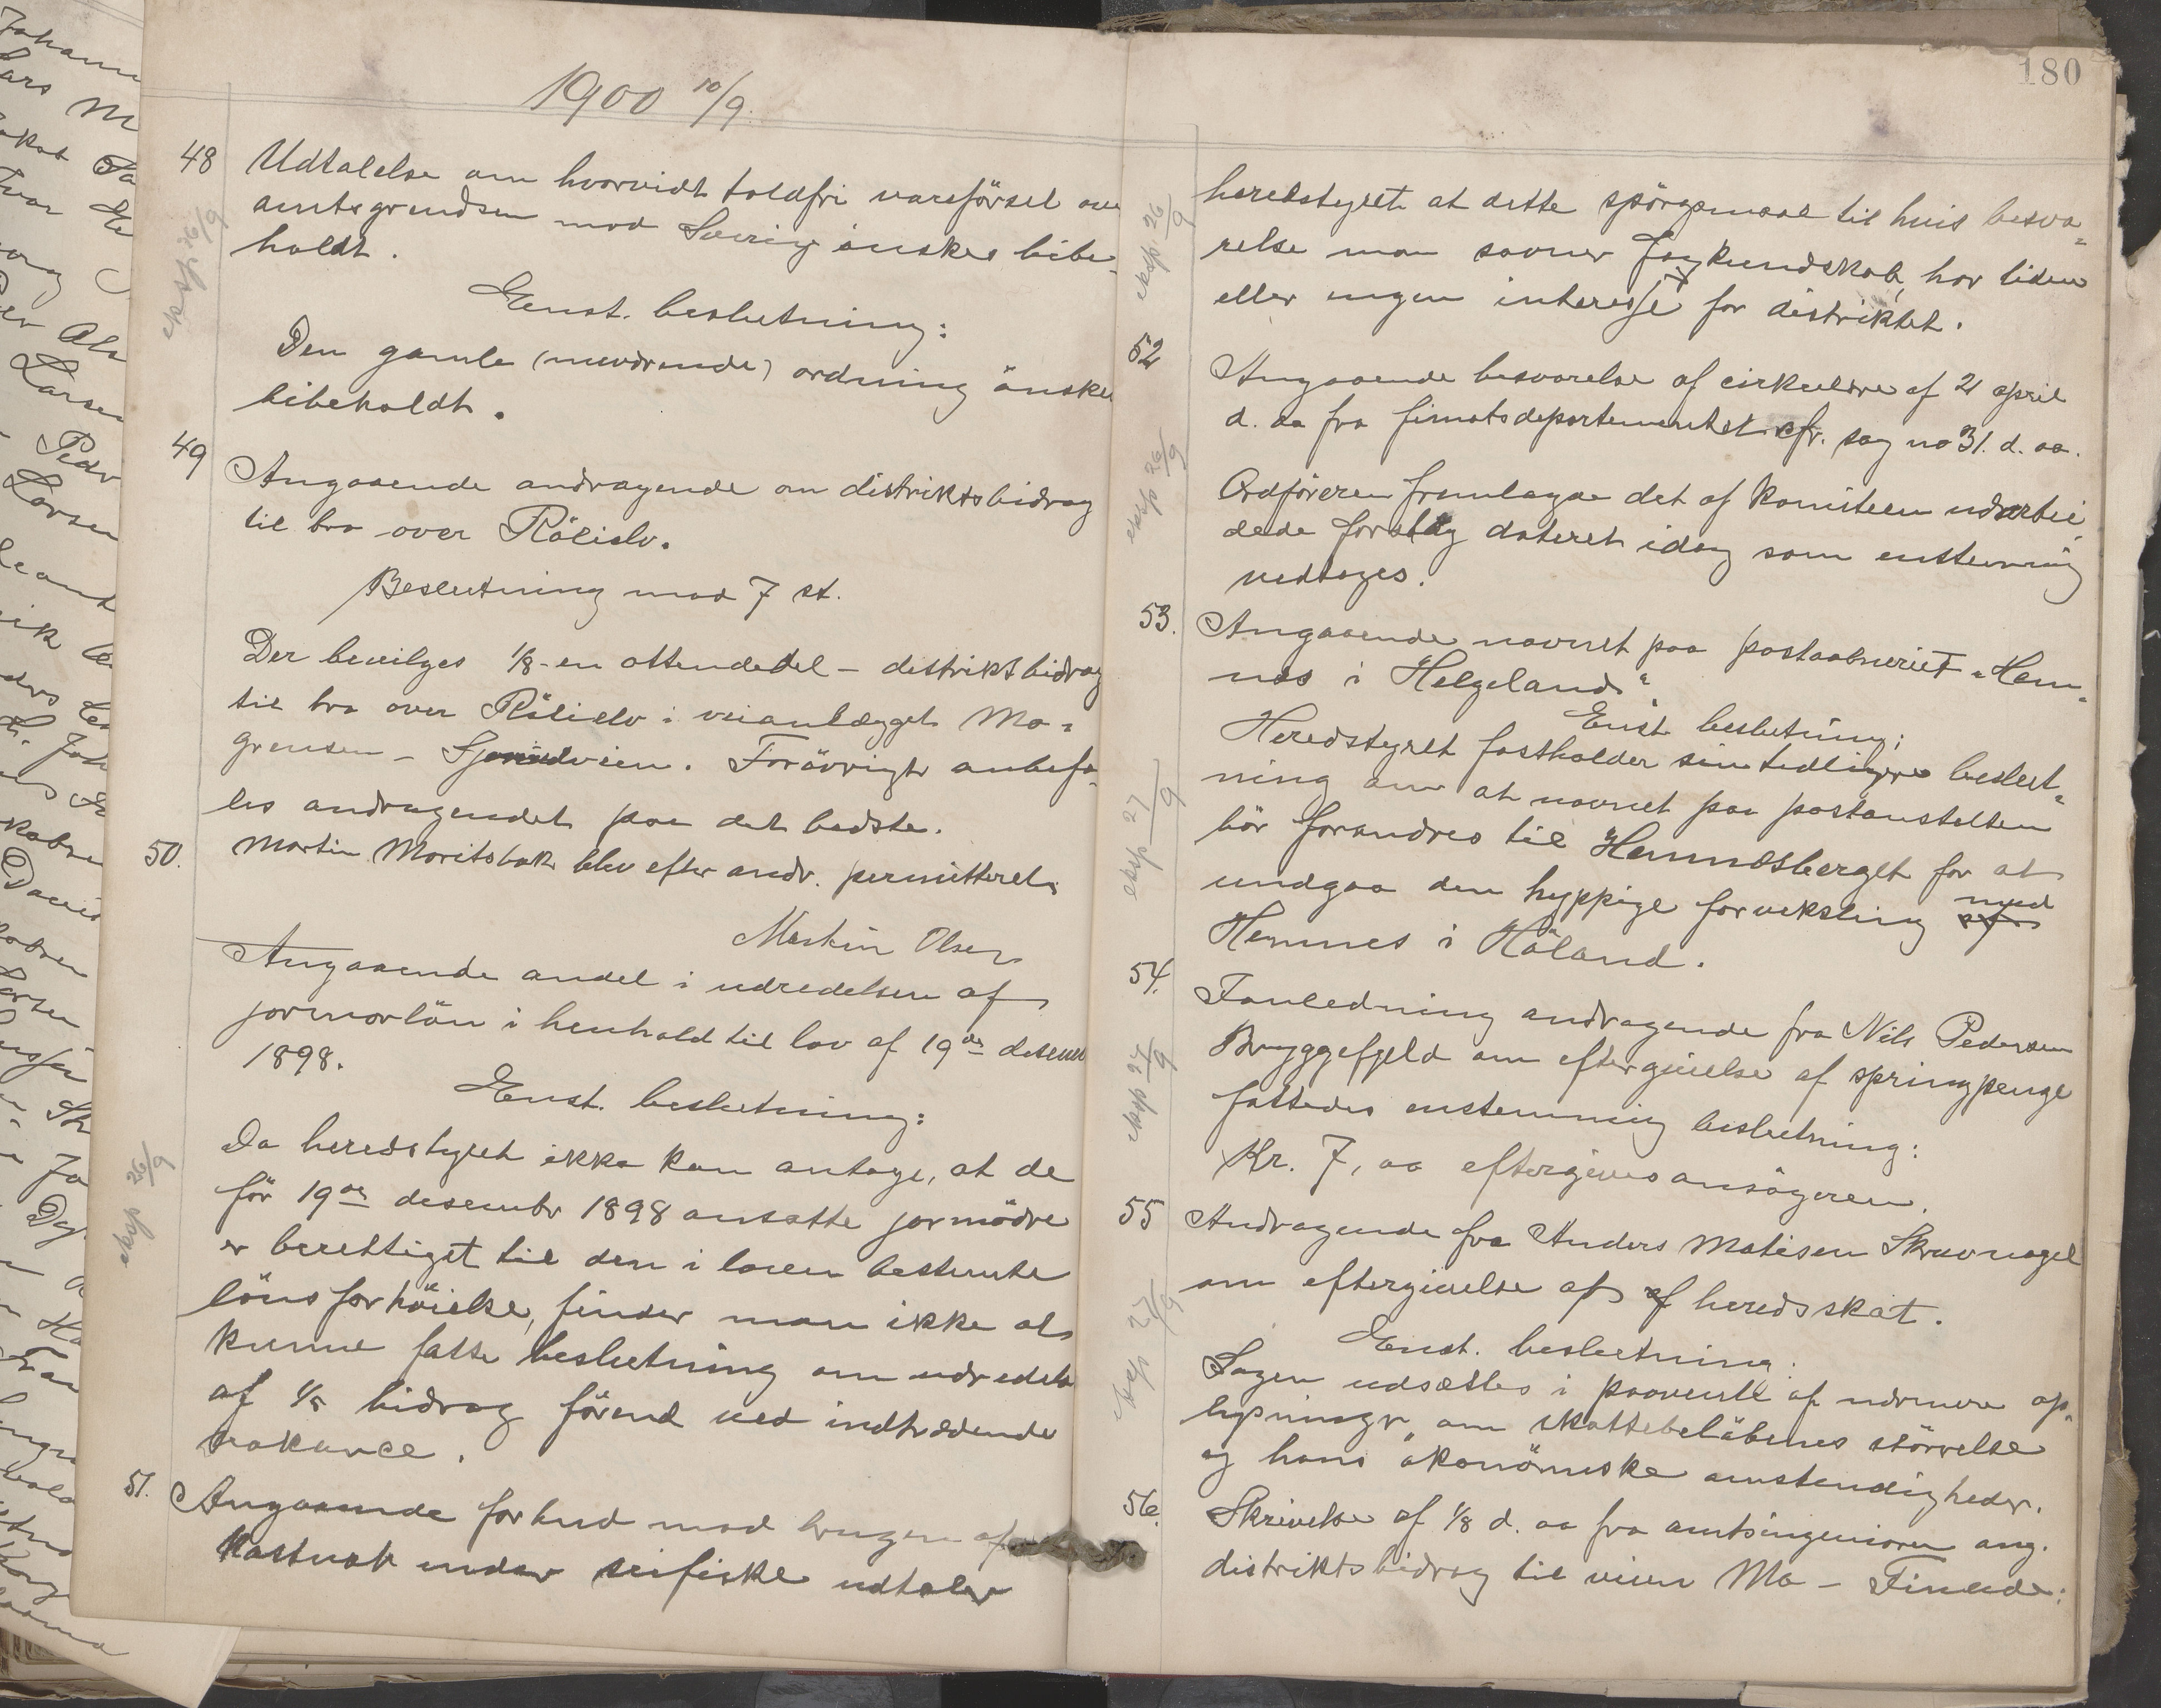 1900 10/9.
48 Udtalelse om hvorvidt toldfri vareförsel over
amtsgrendsen mod Sverig önskes bibe-
holdt.
eksp. 26/9
Enst. beslutning:
Den gamle (nuværende) ordning önskes
bibeholdt.
49 Angaaende andragende om distriktsbidrag
til bro over Rölielv.
Beslutning mod 7 st.
Der bevilges 1/8 - en ottendedel - distriktsbidrag
til bro over Rölielv i veianlægget Mo-
grensen - . Forövrigt anbefa-
les andragendet paa det bedste.
50. Martin Moritsbak blev efter andr. permitteret.
Martin Olsen
Angaaende andel i udredelsen af
jormorlön i henhold til lov af 19de desember
1898.
Enst. beslutning:
eksp 26/9
Da heredstyret ikke kan antage, at de
för 19de desembr 1898 ansatte jormödre
er berettiget til den i loven bestemte
lönsforhöielse, finder man ikke at
kunne fatte beslutning om udredelse
af 1/8 bidrag förend ved indtrædende
vakance.
51. Angaaende forbud mod brugen af
Kastnot under seifiske udtaler
180
heredstyret at dette spörgsmaal til hvis besva-
relse man savner fagkundskab, har liden
eller ingen interesse for distriktet.
eksp. 26/9
52 Angaaende besvarelse af cirkulære af 21 april
d. aa fra finatsdepartementet cfr. sag no 31. d. aa.
Ordföreren fremlagde det af komiteen udarbei-
dede forslag dateret idag som enstemmig
vedtoges.
eksp 26/9
53. Angaaende navnet paa postaabneriet „Hem-
næs i Helgeland“.
Enst. beslutning:
Heredstyret fastholder sin tidligere beslut-
ning om at navnet paa postanstalten
bör forandres til Hemnæsberget for at
undgaa den hyppige forveksling af med
Hemnes i Höland.
eksp 27/9
54. I anledning andragende fra Nils Pedersen
Bryggefjeld om eftergivelse af springpenge
fattedes enstemmig beslutning:
Kr. 7, oo eftergives ansögeren.
eksp 27/9
55 Andragende fra Anders Matisen Skravnagel
om eftergivelse af af heredsskat.
Enst. beslutning:
Sagen udsættes i paavente af nærmere op-
lysninger om skattebelöbenes störrelse
og hans ökonömiske omstendigheder.
eksp 27/9
56. Skrivelse af 1/8 d. aa fra amtsingeniören ang.
distriktsbidrag til veien Mo -